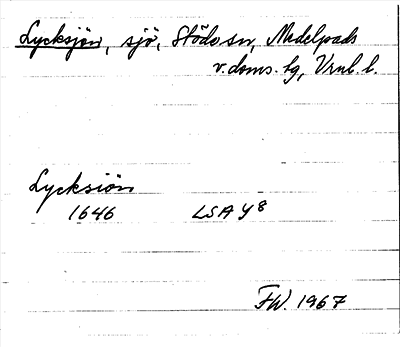 Lycksjön, sjö, Stöde sn, Medelpads
v. doms. tg, Vrnl. l.
Lycksiön
1646 LSA Y8
FW. 1967